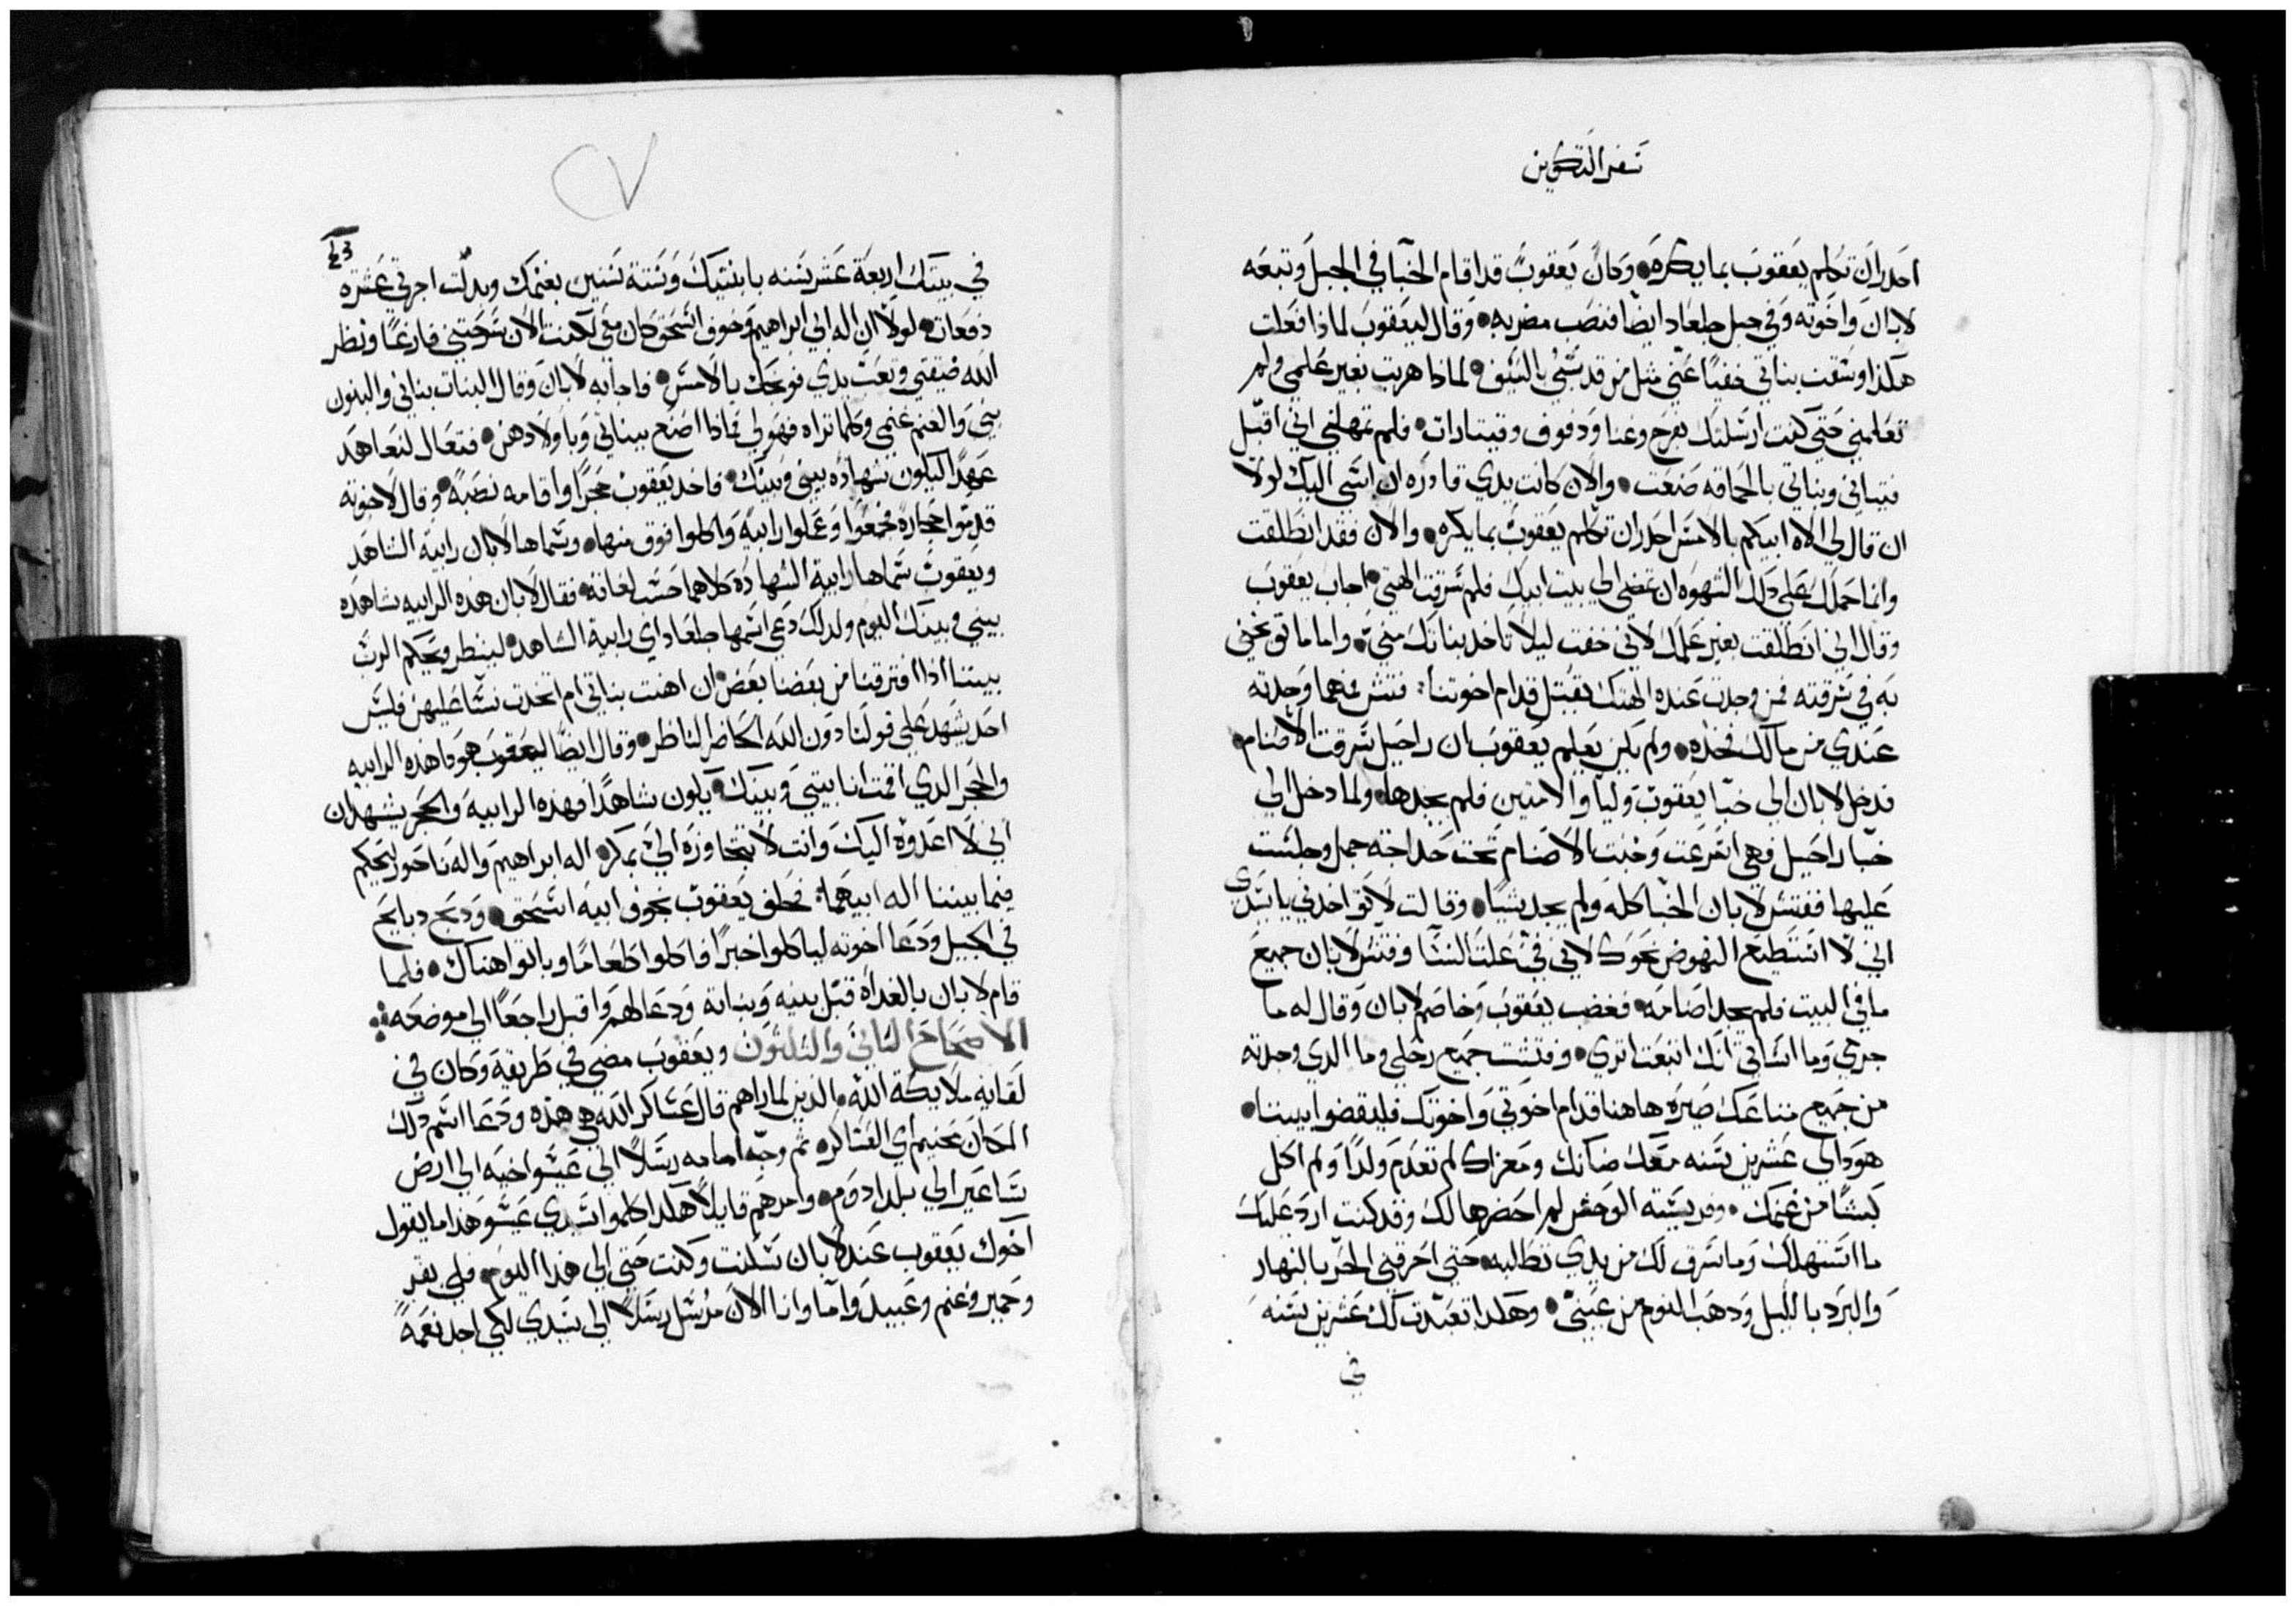 سفر التكوين
احدر ان تكلم يعقوب بما يكره وكان يعقوب قد اقام الخبا في الجبل وتبعه
لابان واخوته وفي جبل جلعاد ايضا فنصب مضربه وقال ليعقوب لماذا فعلت
هكذا وسقت بناتي خفيا عني مثل من قد سبي بالسيف لماذا هربت بغير علمي ولم
تعلمني حتى كنت ارسلتك بفرح وغنا ودفوف وقيتارات فلم تمهلني اني اقبل
بنياني وبناتي بالحماقه صنعت والان كانت يدي قادره ان اسي اليك لولا
ان قال لي الاه ابيكم بالامس احدر ان تكلم يعقوب بما يكره والان فقد انطلقت
وانما حملك على دلك الشهوه ان تمضي الي بيت ابيك فلم سرقت الهتي اجاب يعقوب
وقال اني انطلقت بغير علمك لاني خفت ليلا تاخد بناتك مني واما ما توبخني
به في سرقته فمن وجدت عنده الهتك يقتل قدام اخوتنا فتش فمهما وجدته
عندي من مالك فخده ولم يكن يعلم يعقوب ان راحيل سرقت الاصنام
فدخل لابان الى خبا يعقوب وليا والامتين فلم يجدها ولما دخل الي
خبا راحيل فهي اسرعت وخبت الاصنام تحت حداجة جمل وجلست
عليها ففتش لابان الخبا كله ولم يجد شيا وقالت لا تواخدني يا سيدي
اني لا استطيع النهوض نحوك لاني في علت النسا وفتش لابان جميع
ما في البيت فلم يجد اصنامه فغضب يعقوب وخاصم لابان وقال له ما
جرمي وما اساتي انك اتبعت اتري وفتشت جميع رحلي وما الدي وجدته
من جميع متاعك صيره هاهنا قدام اخوتي واخوتك فليقضوا بيننا
هودا لي عشرين سنه معك ضانك ومعزاك لم تعدم ولدا ولم اكل
كبشا من غنمك وفريسته الوحش لم احضرها لك وقد كنت ارد عليك
ما استهلك وما سرق لك من يدي تطالبه حتى احرقني الحر بالنهار
والبرد بالليل ودهب النوم من عيني وهكدا تعبدت لك عشرين سنه
في
في بيتك اربعة عشر سنه بابنتيك وستة سنين بغنمك وبدلت اجرتي عشره
دفعات لولا ان اله ابي ابراهيم وخوف اسحق كان معي لكنت الان سرحتني فارغا ونظر
الله ضيقتي وتعب يدي فوبخك بالامس فاجابه لابان وقال البنات بناتي والبنون
بني والغنم غنمي وكلما تراه فهو لي فمادا اصنع ببناتي وباولادهن فتعال لنتعاهد
عهدا ليكون شهاده بيني وبينك فاخد يعقوب حجرا واقامه نصبة وقال لاخوته
قدموا حجاره فجمعوا وعملوا رابية واكلوا فوق منها وسماها لابان رابية الشاهد
ويعقوب سماها رابية الشهاده كلاهما حسب لغاته فقال لابان هده الرابيه شاهده
بيني وبينك اليوم ولدلك دعي اسمها جلعاد اي رابية الشاهد لينظر ويحكم الرب
بيننا ادا افترقنا من بعضنا بعض ان اهنت بناتي ام اتخدت نسا عليهن فليس
احد يشهد على قولنا دون الله الحاضر الناظر وقال ايضا ليعقوب هودا هده الرابيه
والحجر الدي اقمت انا بيني وبينك يكون شاهدا فهده الرابيه والحجر يشهدان
اني لا اعدوه اليك وانت لا تتجاوزه الي بمكر اله ابراهيم واله ناحور ليحكم
فيما بيننا اله ابيهما فحلف يعقوب بخوف ابيه اسحق ودبح دبايح
في الجبل ودعا اخوته لياكلوا خبزا فاكلوا طعاما وباتوا هناك فلما
قام لابان بالغداه قبل بنيه وبناته ودعا لهم واقبل راجعا الي موضعه
الاصحاح التاني والتلتون ويعقوب مضى في طريقه وكان في
لقايه ملايكة الله والدين لما راهم قال عساكر الله هي هده ودعا اسم دلك
المكان محنيم اي العساكر ثم وجه امامه رسلا الى عيسو اخيه الي ارض
ساعير الي بلد ادوم وامرهم قايلا هكدا كلموا سيدي عيسو هدا ما يقول
اخوك يعقوب عند لابان سكنت وكنت حتى الى هدا اليوم فلي بقر
وحمير وغنم وعبيد واما وانا الان مرسل رسلا الى سيدي لكي اجد نعمة